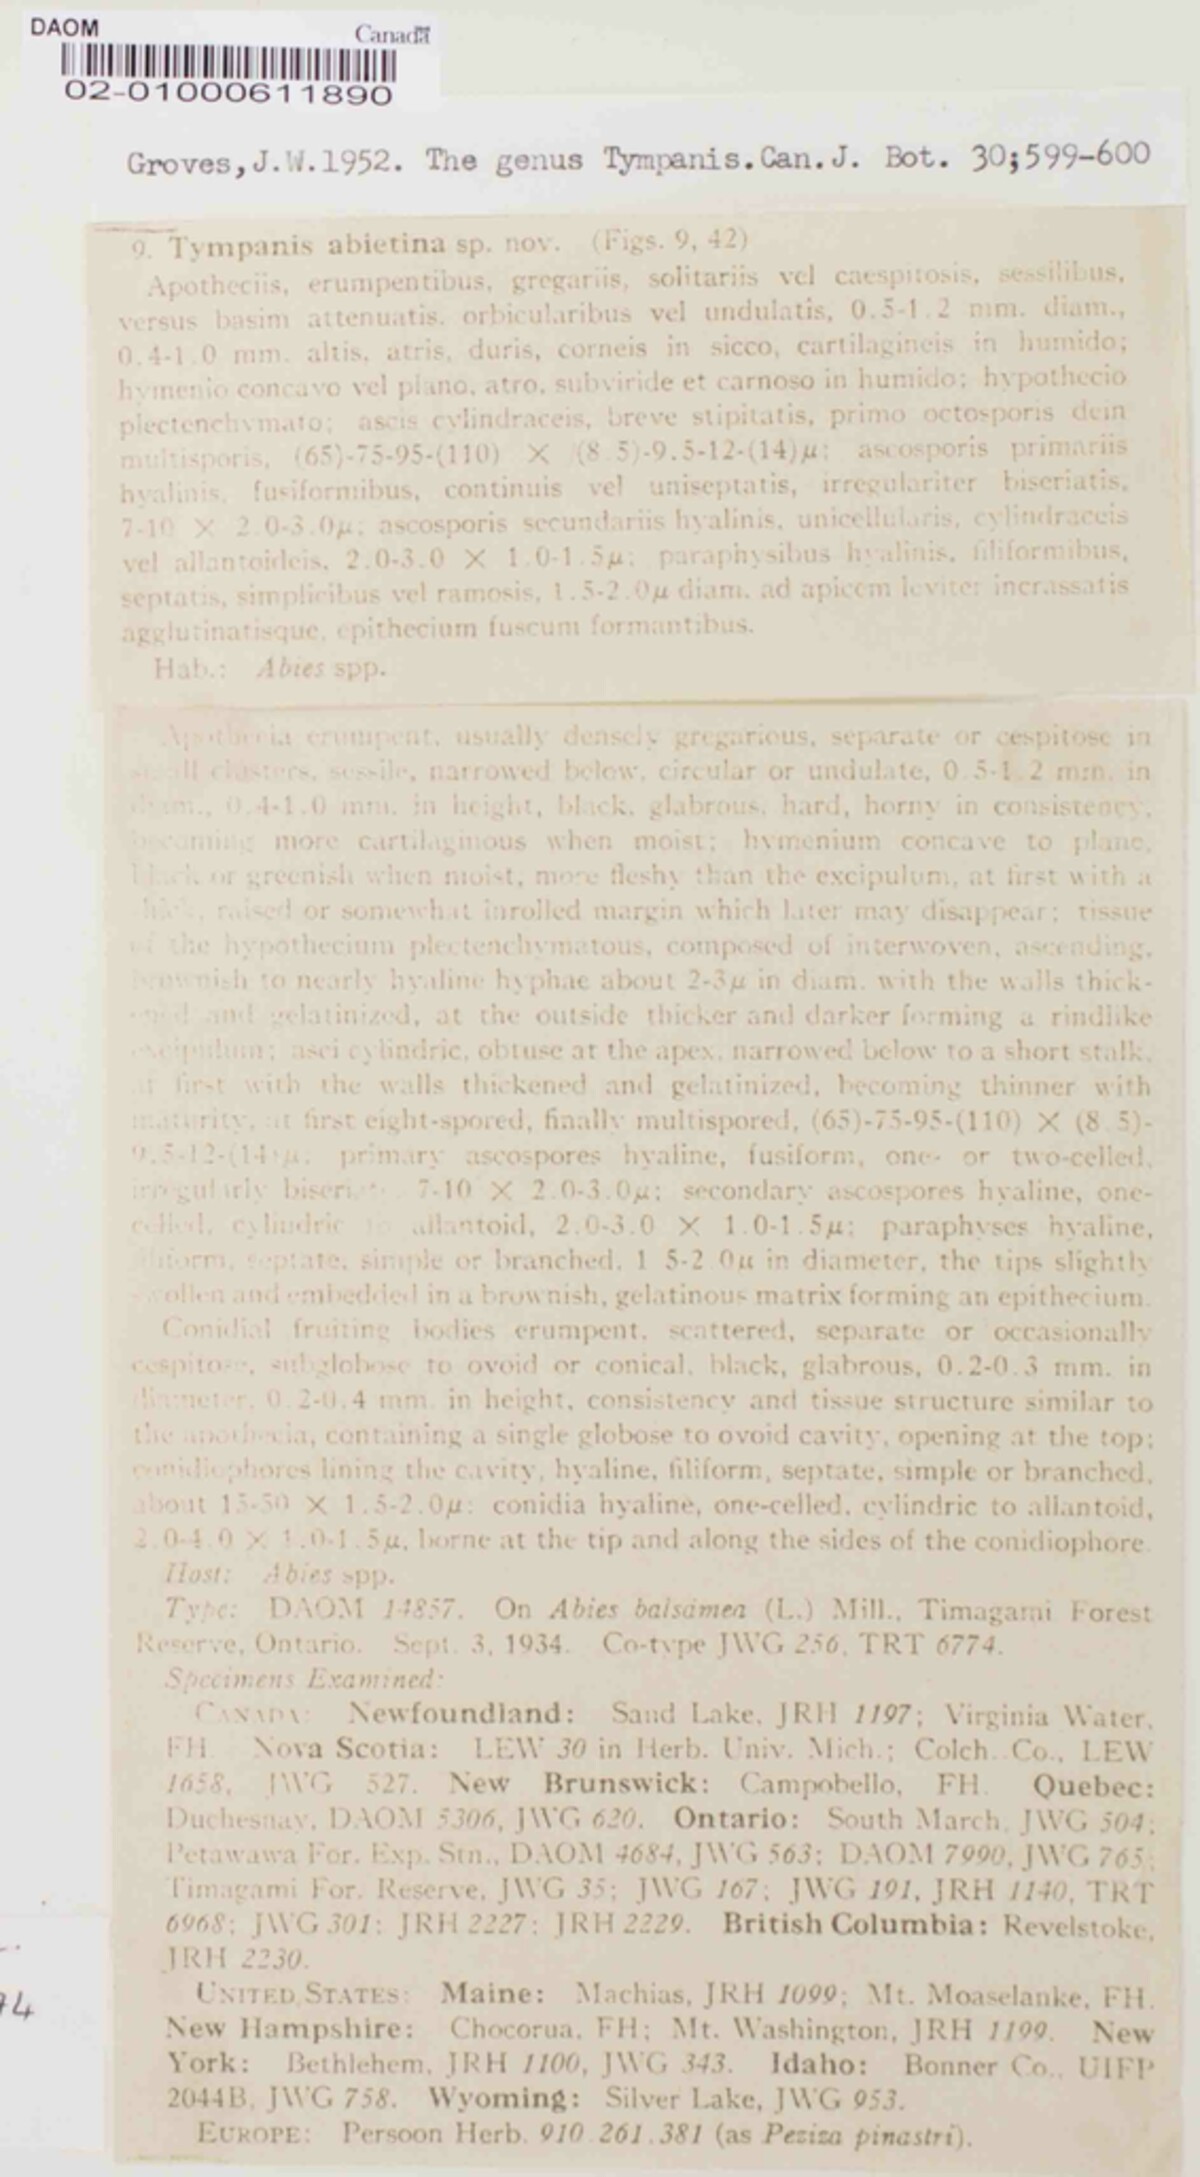 DAOM
Canada
02-01000611890
Groves,J.W.1952. The genus Tympanis.Can.J. Bot. 30;599-600
9. Tympanis abietina sp. nov. (Figs. 9, 42)
Apotheciis, erumpentibus, gregariis, solitariis vel caespitosis, sessilibus,
versus basim attenuatis, orbicularibus vel undulatis, 0.5-1.2 mm. diam.,
0.4-1.0 mm. altis, atris, duris, corneis in sicco, cartilagineis in humido;
hymenio concavo vel plano, atro, subviride et carnoso in humido; hypothecio
plectenchymato; ascis cylindraceis, breve stipitatis, primo octosporis dein
multisporis, (65)-75-95-(110) × (8.5)-9.5-12-(14)μ; ascosporis primariis
hyalinis, fusiformibus, continuis vel uniseptatis, irregulariter biseriatis,
7-10 × 2.0-3.0μ; ascosporis secundariis hyalinis, unicellularis, cylindraceis
vel allantoideis, 2.0-3.0 × 1.0-1.5μ; paraphysibus hyalinis, filiformibus,
septatis, simplicibus vel ramosis, 1.5-2.0μ diam. ad apicem leviter incrassatis
agglutinatisque, epithecium fuscum formantibus.
Hab.: Abies spp.
Apothecia erumpent, usually densely gregarious, separate or cespitose in
small clusters, sessile, narrowed below, circular or undulate, 0.5-1.2 mm. in
diam., 0.4-1.0 mm. in height, black, glabrous, hard, horny in consistency,
becoming more cartilaginous when moist; hymenium concave to plane,
black or greenish when moist, more fleshy than the excipulum, at first with a
thick, raised or somewhat inrolled margin which later may disappear; tissue
of the hypothecium plectenchymatous, composed of interwoven, ascending,
brownish to nearly hyaline hyphae about 2-3μ in diam. with the walls thick-
ened and gelatinized, at the outside thicker and darker forming a rindlike
excipulum; asci cylindric, obtuse at the apex, narrowed below to a short stalk,
at first with the walls thickened and gelatinized, becoming thinner with
maturity, at first eight-spored, finally multispored, (65)-75-95-(110) × (8.5)-
9.5-12-(14)μ; primary ascospores hyaline, fusiform, one- or two-celled,
irregularly biseriate, 7-10 × 2.0-3.0μ; secondary ascospores hyaline, one-
celled, cylindric to allantoid, 2.0-3.0 × 1.0-1.5μ; paraphyses hyaline,
filiform, septate, simple or branched, 1.5-2.0μ in diameter, the tips slightly
swollen and embedded in a brownish, gelatinous matrix forming an epithecium.
Conidial fruiting bodies erumpent, scattered, separate or occasionally
cespitose, subglobose to ovoid or conical, black, glabrous, 0.2-0.3 mm. in
diameter, 0.2-0.4 mm. in height, consistency and tissue structure similar to
the apothecia, containing a single globose to ovoid cavity, opening at the top;
conidiophores lining the cavity, hyaline, filiform, septate, simple or branched,
about 15-50 × 1.5-2.0μ; conidia hyaline, one-celled, cylindric to allantoid,
2.0-4.0 × 1.0-1.5μ, borne at the tip and along the sides of the conidiophore.
Host: Abies spp.
Type: DAOM 14857. On Abies balsamea (L.) Mill., Timagami Forest
Reserve, Ontario. Sept. 3, 1934. Co-type JWG 256, TRT 6774.
Specimens Examined:
CANADA: Newfoundland: Sand Lake, JRH 1197; Virginia Water,
FH. Nova Scotia: LEW 30 in Herb. Univ. Mich.; Colch. Co., LEW
1658, JWG 527. New Brunswick: Campobello, FH. Quebec:
Duchesnay, DAOM 5306, JWG 620. Ontario: South March, JWG 504;
Petawawa For. Exp. Stn., DAOM 4684, JWG 563; DAOM 7990, JWG 765;
Timagami For. Reserve, JWG 35; JWG 167; JWG 191, JRH 1140, TRT
6968; JWG 301; JRH 2227; JRH 2229. British Columbia: Revelstoke,
JRH 2230.
UNITED STATES: Maine: Machias, JRH 1099; Mt. Moaselanke, FH.
New Hampshire: Chocorua, FH; Mt. Washington, JRH 1199. New
York: Bethlehem, JRH 1100, JWG 343. Idaho: Bonner Co., UIFP
2044B, JWG 758. Wyoming: Silver Lake, JWG 953.
EUROPE: Persoon Herb. 910.261.381 (as Peziza pinastri).